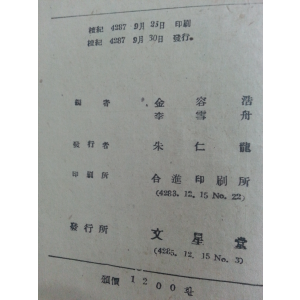 檀紀 4287 9月 25日 印刷
檀紀 4287 9月 30日 發行。
編者 金容浩
李雪舟
發行者 朱仁龍
印刷所 合進印刷所
(4283. 12. 15 No. 22)
發行所 文星堂
(4283. 12. 15 No. 3)
領價 1200